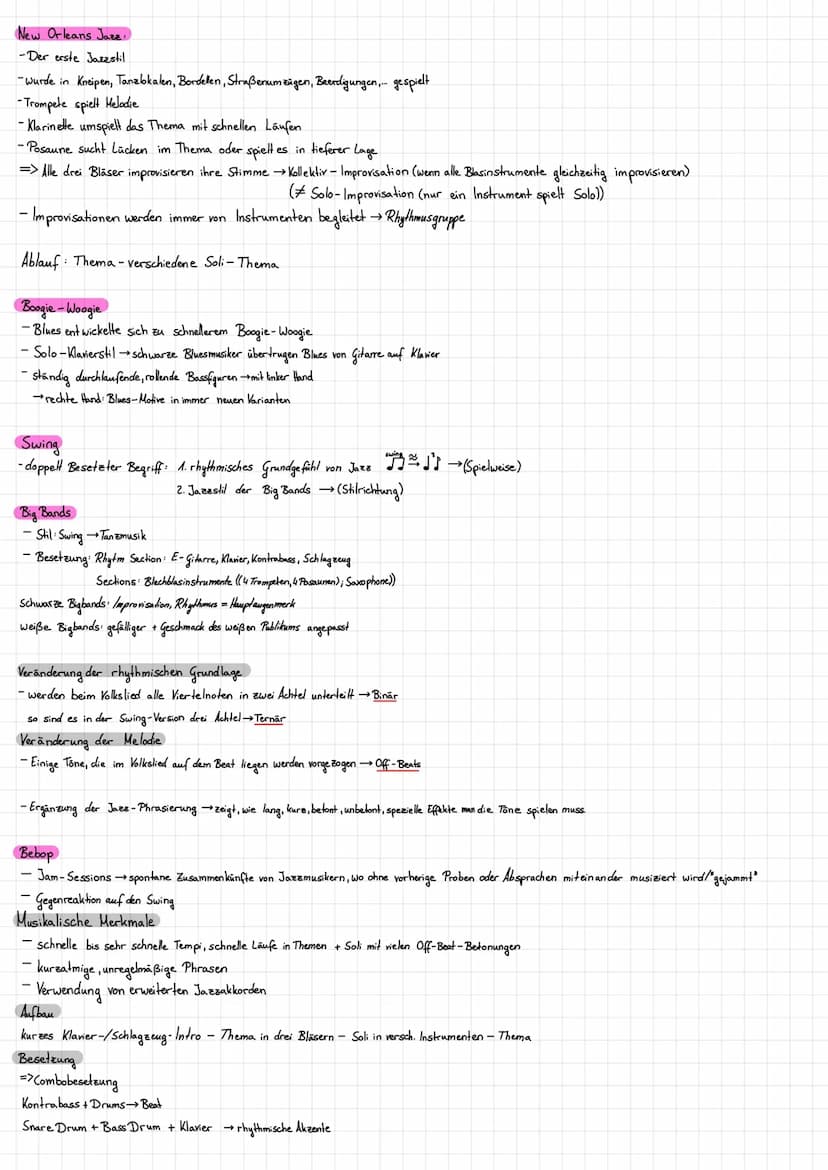 New Orleans Jazz:
- Der erste Jazzstil
- wurde in Kneipen, Tanzlokalen, Bordellen, Straßenumzügen, Beerdigungen,... gespielt
- Trompete spielt Melodie
- Klarinette umspielt das Thema mit schnellen Läufen
- Posaune sucht Lücken im Thema oder spielt es in tieferer Lage
=> Alle drei Bläser improvisieren ihre Stimme → Kollektiv-Improvisation (wenn alle Blasinstrumente gleichzeitig improvisieren)
(≠ Solo-Improvisation (nur ein Instrument spielt Solo))
- Improvisationen werden immer von Instrumenten begleitet → Rhythmusgruppe
Ablauf: Thema - verschiedene Soli - Thema
Boogie-Woogie
- Blues entwickelte sich zu schnellerem Boogie-Woogie
- Solo-Klavierstil → schwarze Bluesmusiker übertrugen Blues von Gitarre auf Klavier
- ständig durchlaufende, rollende Bassfiguren → mit linker Hand
→ rechte Hand: Blues-Motive in immer neuen Varianten
Swing
- doppelt Besetzter Begriff: 1. rhythmisches Grundgefühl von Jazz swing ♫ ≈ ♩ ♪ 3 → (Spielweise)
2. Jazzstil der Big Bands → (Stilrichtung)
Big Bands
- Stil: Swing → Tanzmusik
- Besetzung: Rhytm Section: E-Gitarre, Klavier, Kontrabass, Schlagzeug
Sections: Blechblasinstrumente ((4 Trompeten, 4 Posaunen); Saxophone))
Schwarze Bigbands: Improvisation, Rhythmus = Hauptaugenmerk
weiße Bigbands: gefälliger + Geschmack des weißen Publikums angepasst
Veränderung der rhythmischen Grundlage
- werden beim Volkslied alle Viertelnoten in zwei Achtel unterteilt → Binär
so sind es in der Swing-Version drei Achtel → Ternär
Veränderung der Melodie
- Einige Töne, die im Volkslied auf dem Beat liegen werden vorgezogen → Off-Beats
- Ergänzung der Jazz-Phrasierung → zeigt, wie lang, kurz, betont, unbetont, spezielle Effekte man die Töne spielen muss
Bebop
- Jam-Sessions → spontane Zusammenkünfte von Jazzmusikern, wo ohne vorherige Proben oder Absprachen miteinander musiziert wird/"gejammt"
- Gegenreaktion auf den Swing
Musikalische Merkmale
- schnelle bis sehr schnelle Tempi, schnelle Läufe in Themen + Soli mit vielen Off-Beat-Betonungen
- kurzatmige, unregelmäßige Phrasen
- Verwendung von erweiterten Jazzakkorden
Aufbau
kurzes Klavier-/Schlagzeug-Intro - Thema in drei Bläsern - Soli in versch. Instrumenten - Thema
Besetzung
=> Combobesetzung
Kontrabass + Drums → Beat
Snare Drum + Bass Drum + Klavier → rhythmische Akzente